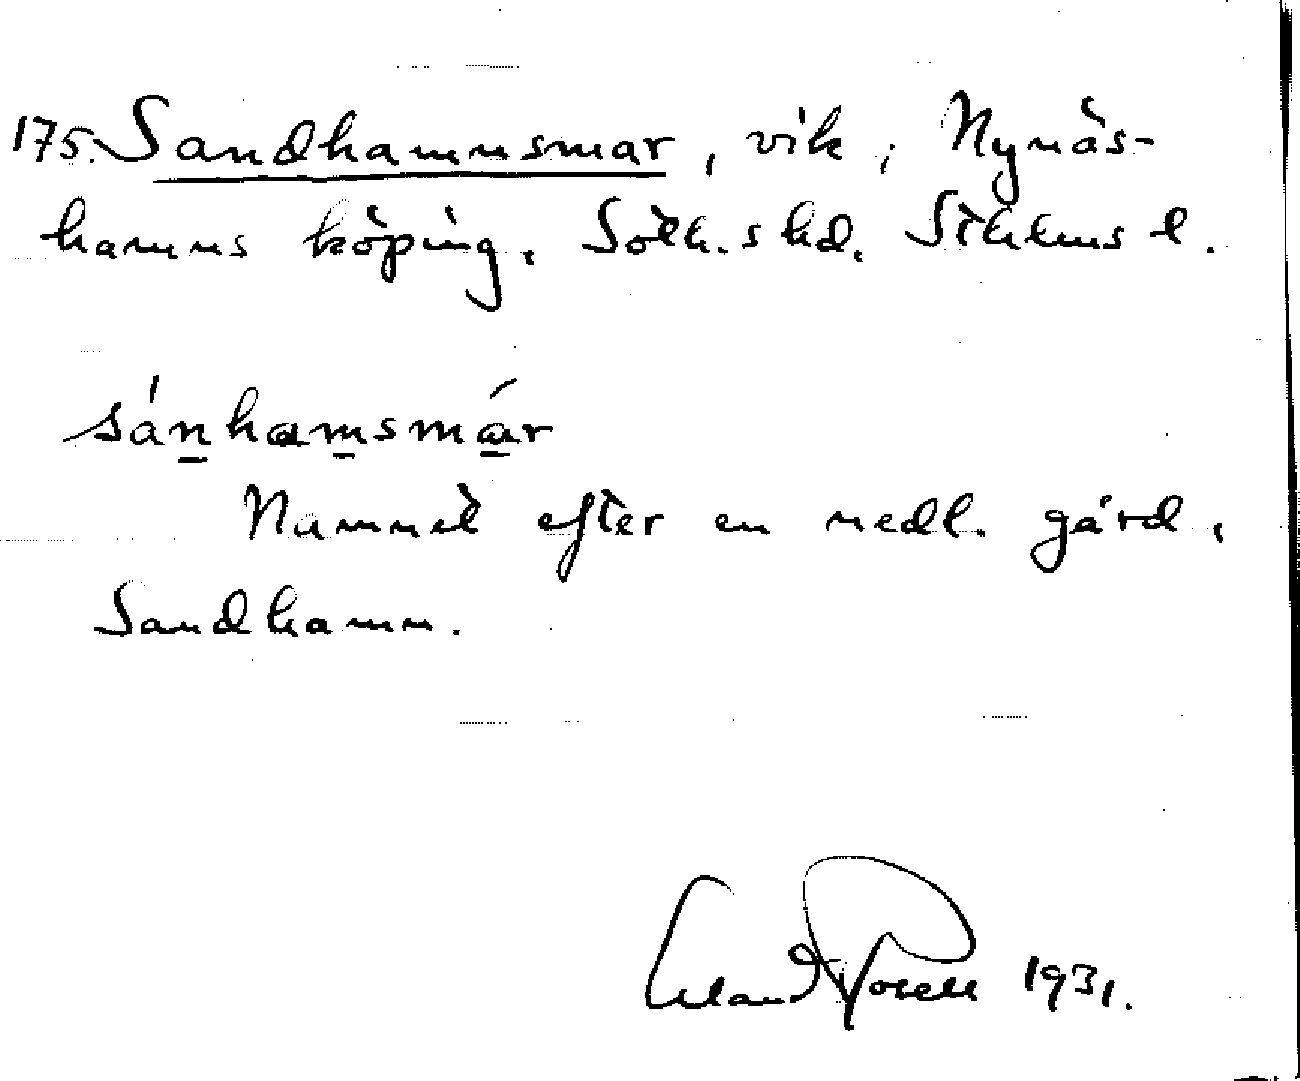 175. Sandhamnsmar, vik, Nynäs-
hamns köping. Soth. shd. Sthlms l.
sánhamsmár
Namnet efter en nedl. gård,
Sandhamn.
Erland Rosell 1931.